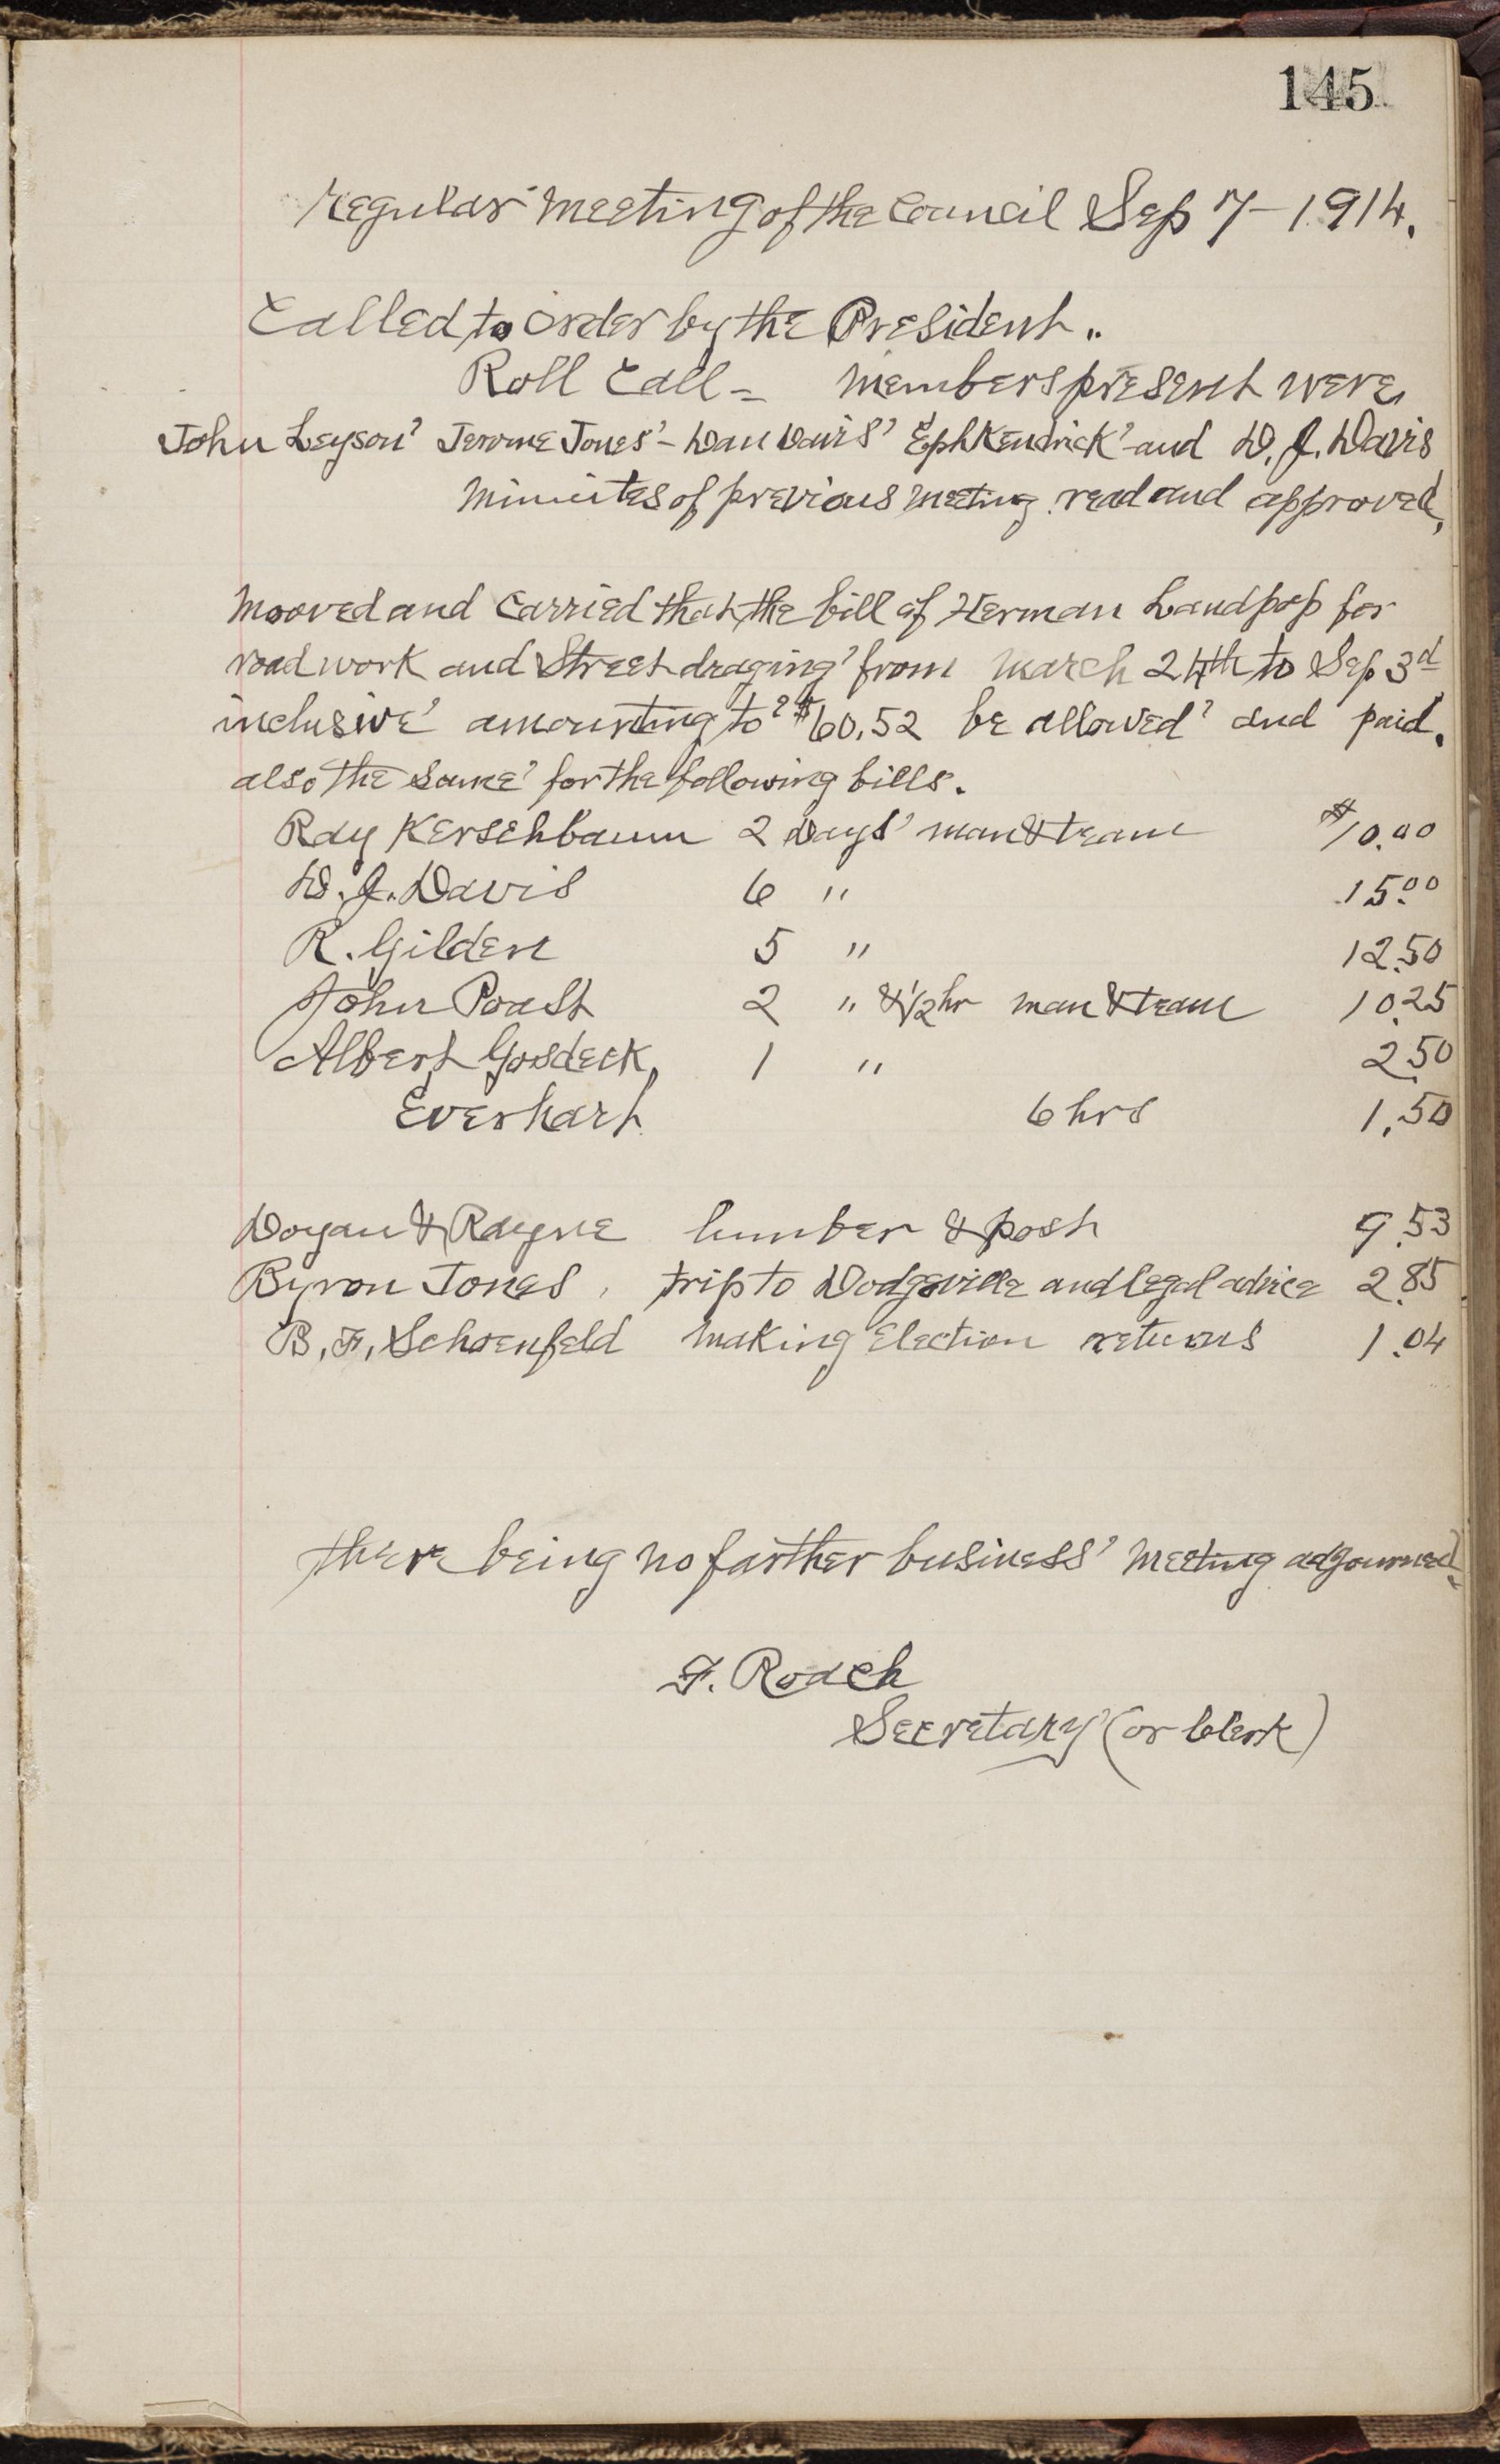 145
Regular Meeting of the Council Sep 7 – 1914.
Called to order by the President.
Roll Call = Members present were,
John Leyson' Jerome Jones' – Dan Davis' Eph Kendrick' and D. J. Davis
Minutes of previous meeting read and approved,
Mooved and Carried that the bill of Herman Landpap for
road work and Street draging' from March 24th to Sep 3d
inclusive' amounting to' $60.52 be allowed' and paid.
also the same' for the following bills.
Ray Kerschbaum 2 Days' man & team $10.00
D. J. Davis 6 " 15.00
R. Gilden 5 " 12.50
John Poast 2 " & 1/2 hr man & team 10.25
Albert Gosdeck, 1 " 2.50
Everhart 6 hrs 1.50
Doyan & Rayne lumber & post 9.53
Byron Jones, trip to Dodgeville and legal advice 2.85
B. F. Schoenfeld Making Election returns 1.04
there being no farther business' Meeting adjourned.
F. Roach
Secretary (or Clerk)